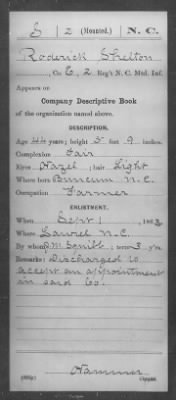 S | 2 (Mounted.) | N. C.
Roderick Shelton
Co. E, 2 Reg't N. C. Mtd. Inf.
Appears on
Company Descriptive Book
of the organization named above.
DESCRIPTION.
Age 44 years; height 5 feet 9 inches.
Complexion Fair
Eyes Hazel; hair Light
Where born Buncum N.C.
Occupation Farmer
ENLISTMENT.
When Sept 1, 1863
Where Laurel N.C.
By whom; term 3 y'rs.
Remarks: Discharged to
accept an appointment
in said Co.
Hammer
Copyist.